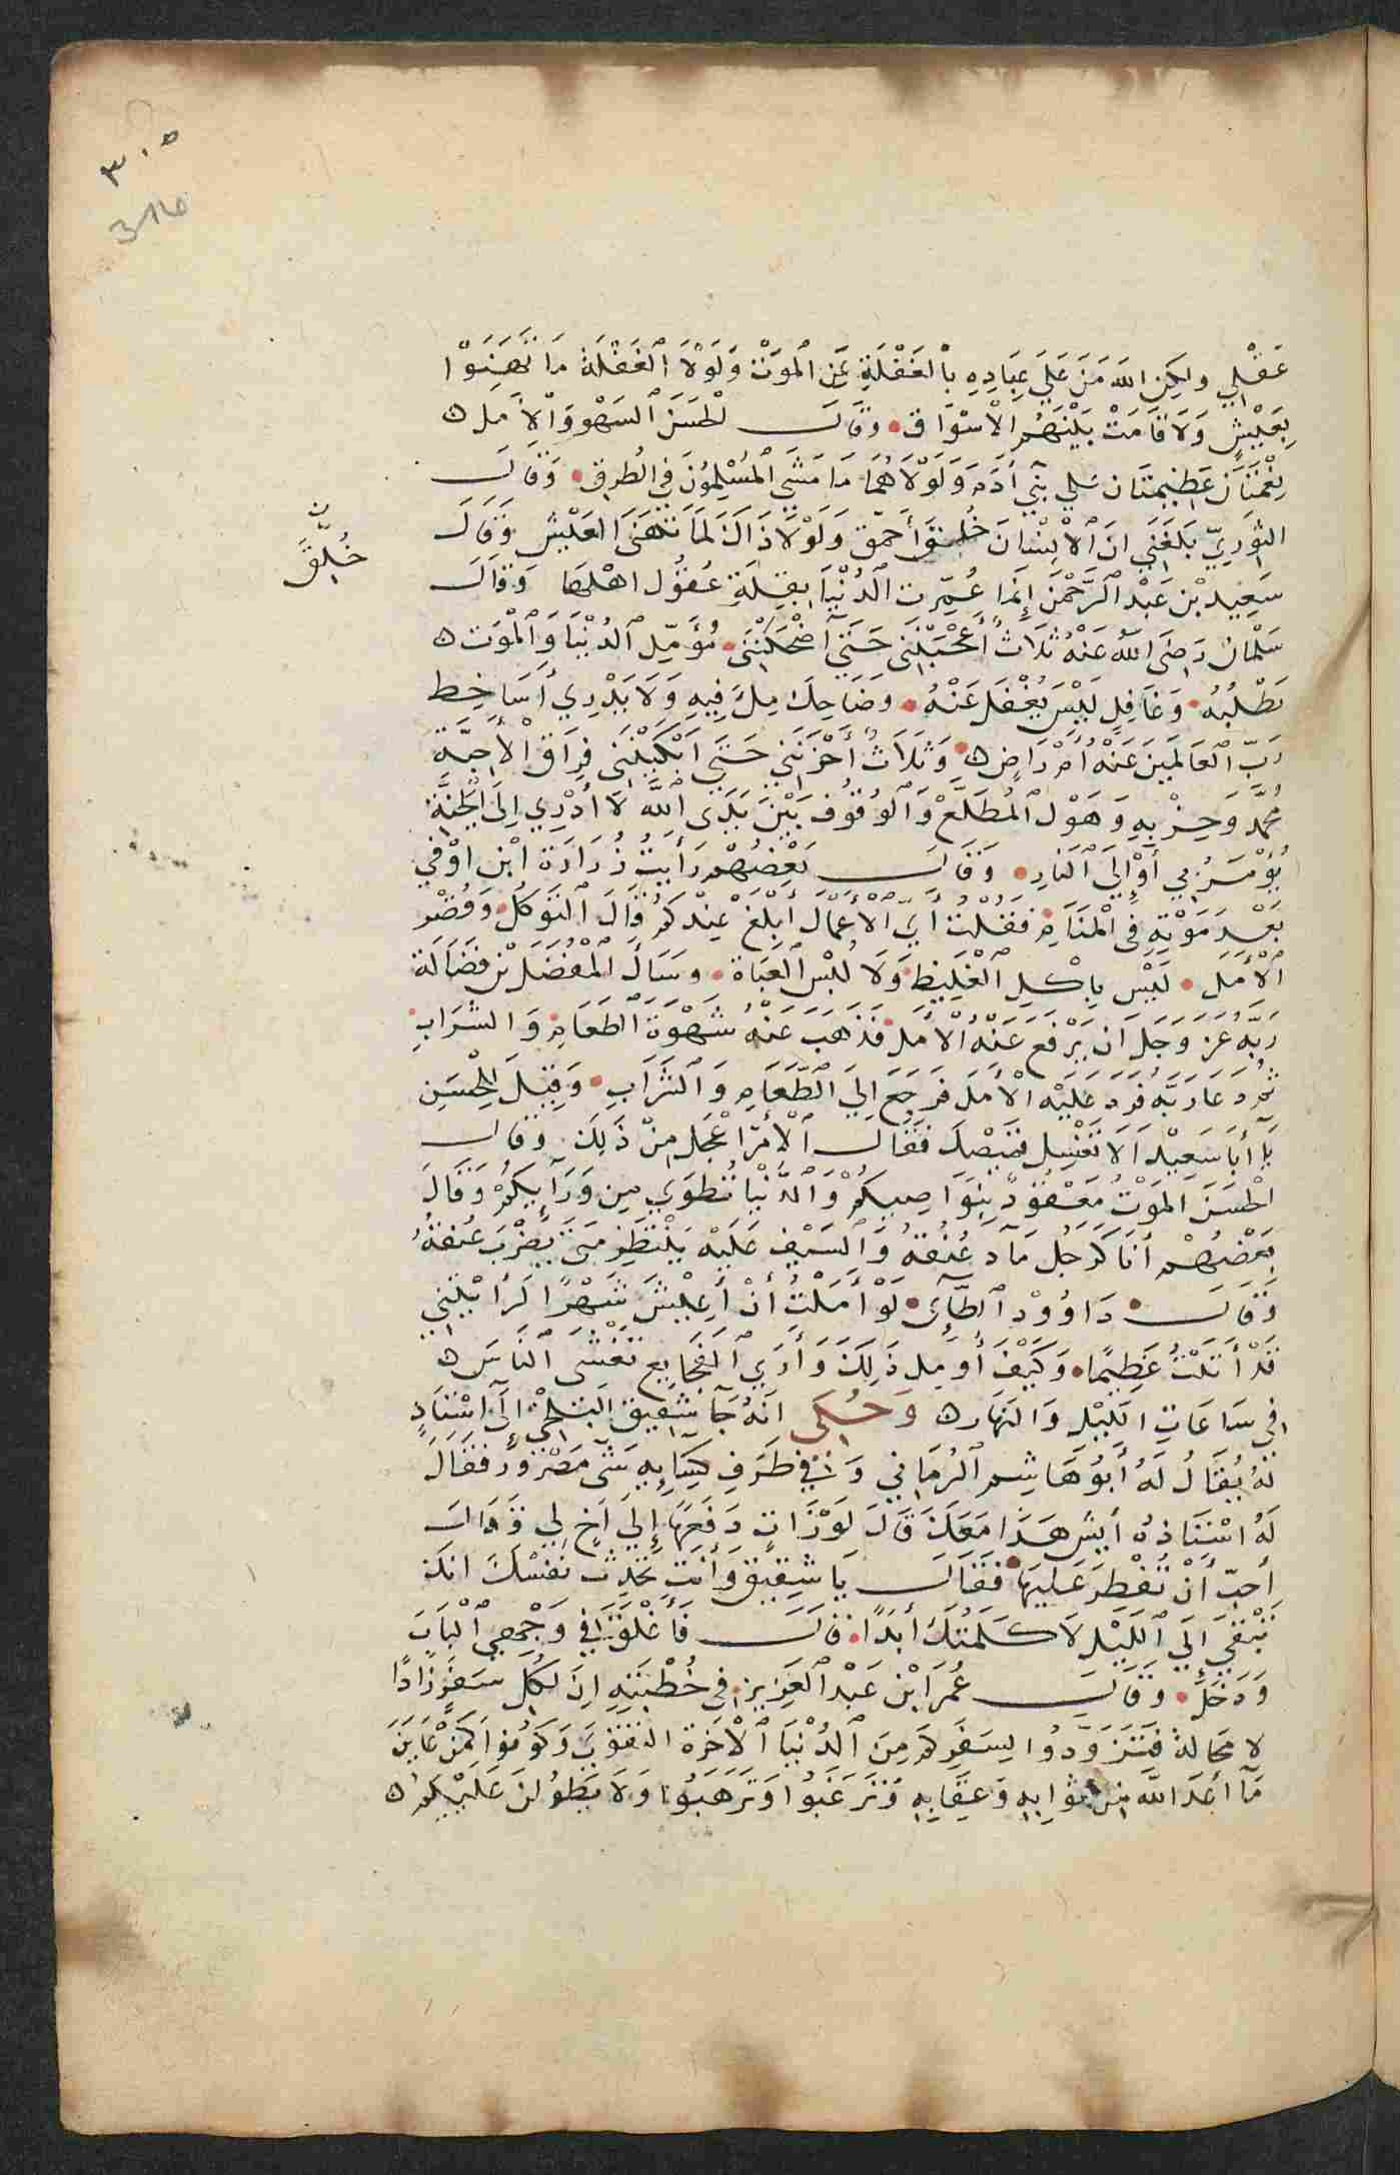 ٣٠٥
310
عَقْلِي ولكِن اللهَ مَنَّ عَلَى عِبَادِهِ بِالْغَفْلَةِ عَنِ الْمَوْتِ وَلَوْلَا الْغَفْلَةُ مَا تَهَنَّوْا
بِعَيْشٍ وَلَا قَامَتْ بَيْنَهُمُ الْأَسْوَاق وَقَالَ الْحَسَنُ السَّهْوُ وَالْأَمَلُ
نِعْمَتَانِ عَظِيمَتَانِ عَلَى بَنِي آدَمَ وَلَوْلَاهُمَا مَا مَشَى الْمُسْلِمُونَ فِي الطُّرُقِ وَقَالَ
الثَّوْرِيّ بَلَغَنِي انَ الْإِنْسَانَ خُلِقَ أَحْمَق وَلَوْلَا ذَالكَ لَمَا تَهَنَّى الْعَيْش وَقَالَ
خُلِقَ
سَعِيد بْن عَبْد الرَّحْمَن إِنَّمَا عُمِّرت الدُّنْيَا بِقِلَّةِ عُقُول اهْلِهَا وَقَالَ
سَلْمَانُ رَضِيَ اللَّهُ عَنْهُ ثَلَاثٌ أَعْجَبْنَنِي حَتَّى أَضْحَكْنَنِي مُؤَمِّل الدُّنْيَا وَالْمَوْت
يَطْلُبُهُ وَغَافِل لَيْسَ يُغْفَل عَنْهُ وَضَاحِك مِلءَ فِيهِ وَلَا يَدْرِي أَسَاخِط
رَبّ الْعَالَمِينَ عَنْهُ أَمْ رَاضٍ وَثَلَاثٌ أَحْزَنَنِي حَتَّى أَبْكَيْنَنِي فِرَاقُ الْأَحِبَّة
مُحَمَّد وَحِزْبِهِ وَهَوْل الْمُطَّلَع وَالْوُقُوف بَيْنَ يَدَي اللَّه لَا أَدْرِي إِلَى الْجَنَّة
يُؤْمَرُ بِي أَوْ إِلَى النَّار وَقَالَ بَعْضُهُمْ رَأَيْتُ زُرَارَة ابْن اوْفَى
بَعْدَ مَوْتِهِ فِي الْمَنَامِ فَقُلْتُ أَيّ الْأَعْمَال أَبْلَغ عِنْدكُم قَالَ التَّوَكُّل وَقِصَر
الْأَمَل لَيْسَ بِأَكْلِ الْغَلِيظ وَلَا لُبْس الْعَبَاة وسَأَلَ الْمُفَضَّل بْن فَضَالَة
رَبَّهُ عَزَّ وَجَلَّ ان يَرْفَع عَنْهُ الْأَمَل فَذَهَبَ عَنْهُ شَهْوَة الطَّعَامِ وَالشَّرَاب
ثُمَّ دَعَا رَبَّهُ فَرَدَّ عَلَيْه الْأَمَل فَرَجَعَ إِلَى الطَّعَامِ وَالشَّرَاب وَقِيلَ لِلْحَسَنِ
يَا أَبَا سَعِيد أَلَا تَغْسِل قَمِيصَك فَقَالَ الْأَمْرُ اعْجَل مِنْ ذَلِكَ وَقَالَ
الْحَسَن الْمَوْتُ مَعْقُودٌ بِنَوَاصِيكُمْ وَالدُّنْيَا تُطْوَى مِن وَرَآئِكُمْ وَقَالَ
بَعْضُهُمْ أَنَا كَرَجُل مَآد عُنُقهُ وَالسَّيْف عَلَيْه يَنْتَظِر مَتَى يُضْرَب عُنُقهُ
وَقَالَ دَاوُوْد الطَّآئِي لَوْ أَمَّلْتُ أَنْ أَعِيْشَ شَهْرًا لَرَأَيْتَنِي
قَدْ أَتَيْتُ عَظِيمًا وَكَيْفَ أُؤَمِّل ذَلِكَ وَأَرَى الْفَجَايِع تَغْشَى النَّاسَ
فِي سَاعَاتِ اللَّيْلِ وَالنَّهَار وَحُكِيَ انَهُ جَآءَ شَقِيق الْبَلْخِيّ إِلَى اسْتَاذٍ
لَهُ يُقَالُ لَهُ أَبُو هَاشِم الرُّمَّانِي وَفِي طَرَفِ كِسَايِهِ شَيْء مَصْرُور فَقَالَ
لَهُ اسْتَاذهُ أَيش هَذَا مَعَكَ قَالَ لَوْزَاتٍ دَفَعَهَا إِلَى أَخٍ لِي وَقَالَ
أُحِبّ أَنْ تُفْطِر عَلَيْهَا فَقَالَ يَا شَقِيق وَأَنْتَ تُحَدِّث نَفْسَكَ انكَ
تَبْقَى إِلَى اللَّيْلِ لَا كَلَّمْتُكَ أَبَدًا قَالَ فَأَغْلَقَ فِي وَجْهِي الْبَابَ
وَدَخَلَ وَقَالَ عُمَر ابْن عَبْد الْعَزِيز فِي خُطْبَتِهِ إِنَّ لِكُل سَفَرٍ زَادًا
لا مَحَالةَ فَتَزَوَّدُوا لِسَفَرِكُم مِنَ الدُّنْيَا الْآخِرَة التَّقْوَى وَكُونُوا كَمَنْ عَايَنَ
مَآ أَعَدَّ اللَّه مِن ثَوَابِهِ وَعِقَابِهِ وَتَرْغَبُوا وَتَرْهَبُوا وَلَا يَطُولَنَّ عَلَيْكُمُ